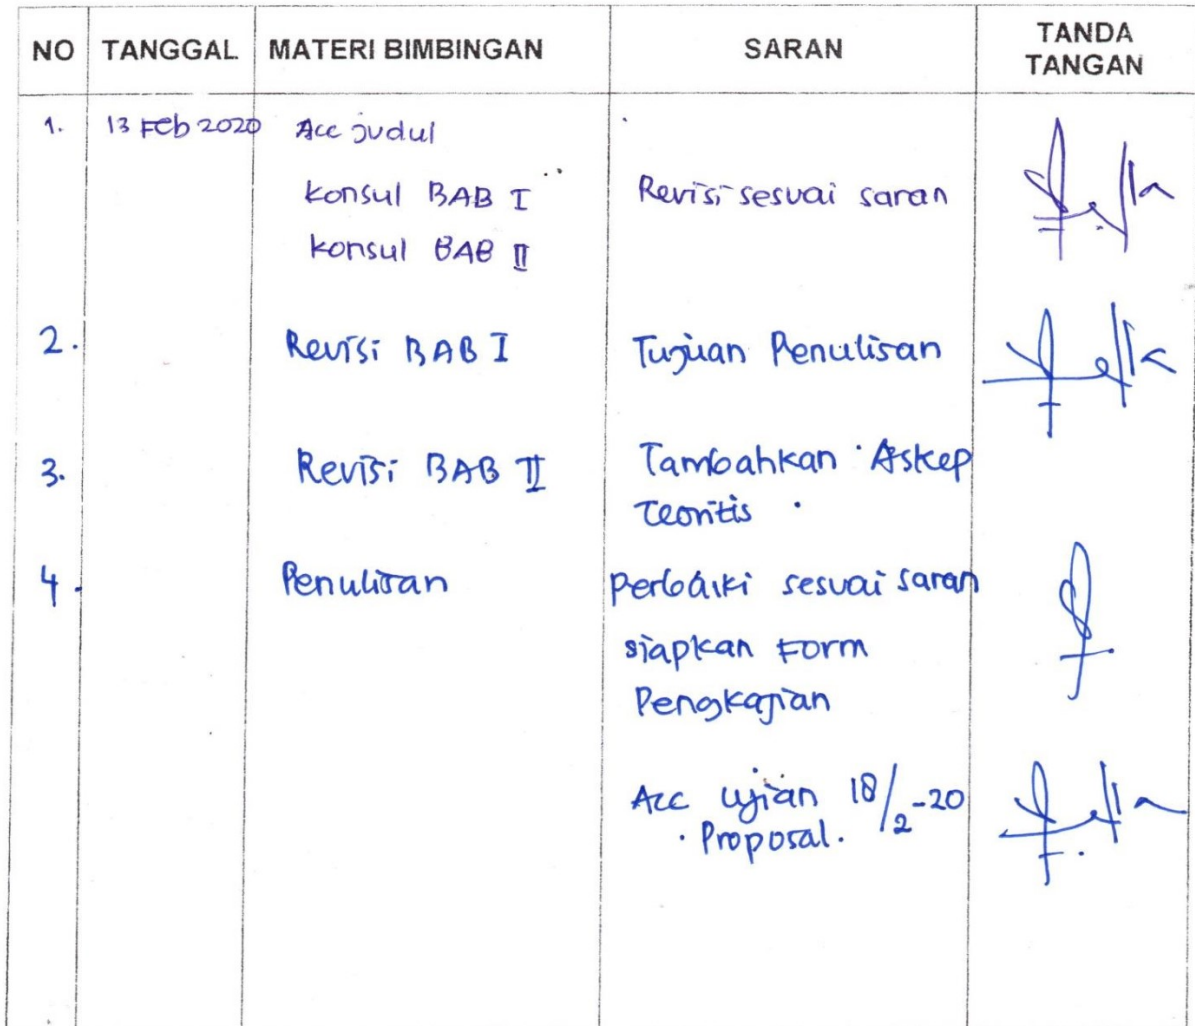 NO TANGGAL MATERI BIMBINGAN SARAN TANDA TANGAN
1. 13 Feb 2020 Acc judul
konsul BAB I Revisi sesuai saran
konsul BAB II
2. Revisi BAB I Tujuan Penulisan
3. Revisi BAB II Tambahkan Askep
Teoritis
4. Penulisan Perbaiki sesuai saran
siapkan Form
Pengkajian
Acc ujian 18/2-20
Proposal.